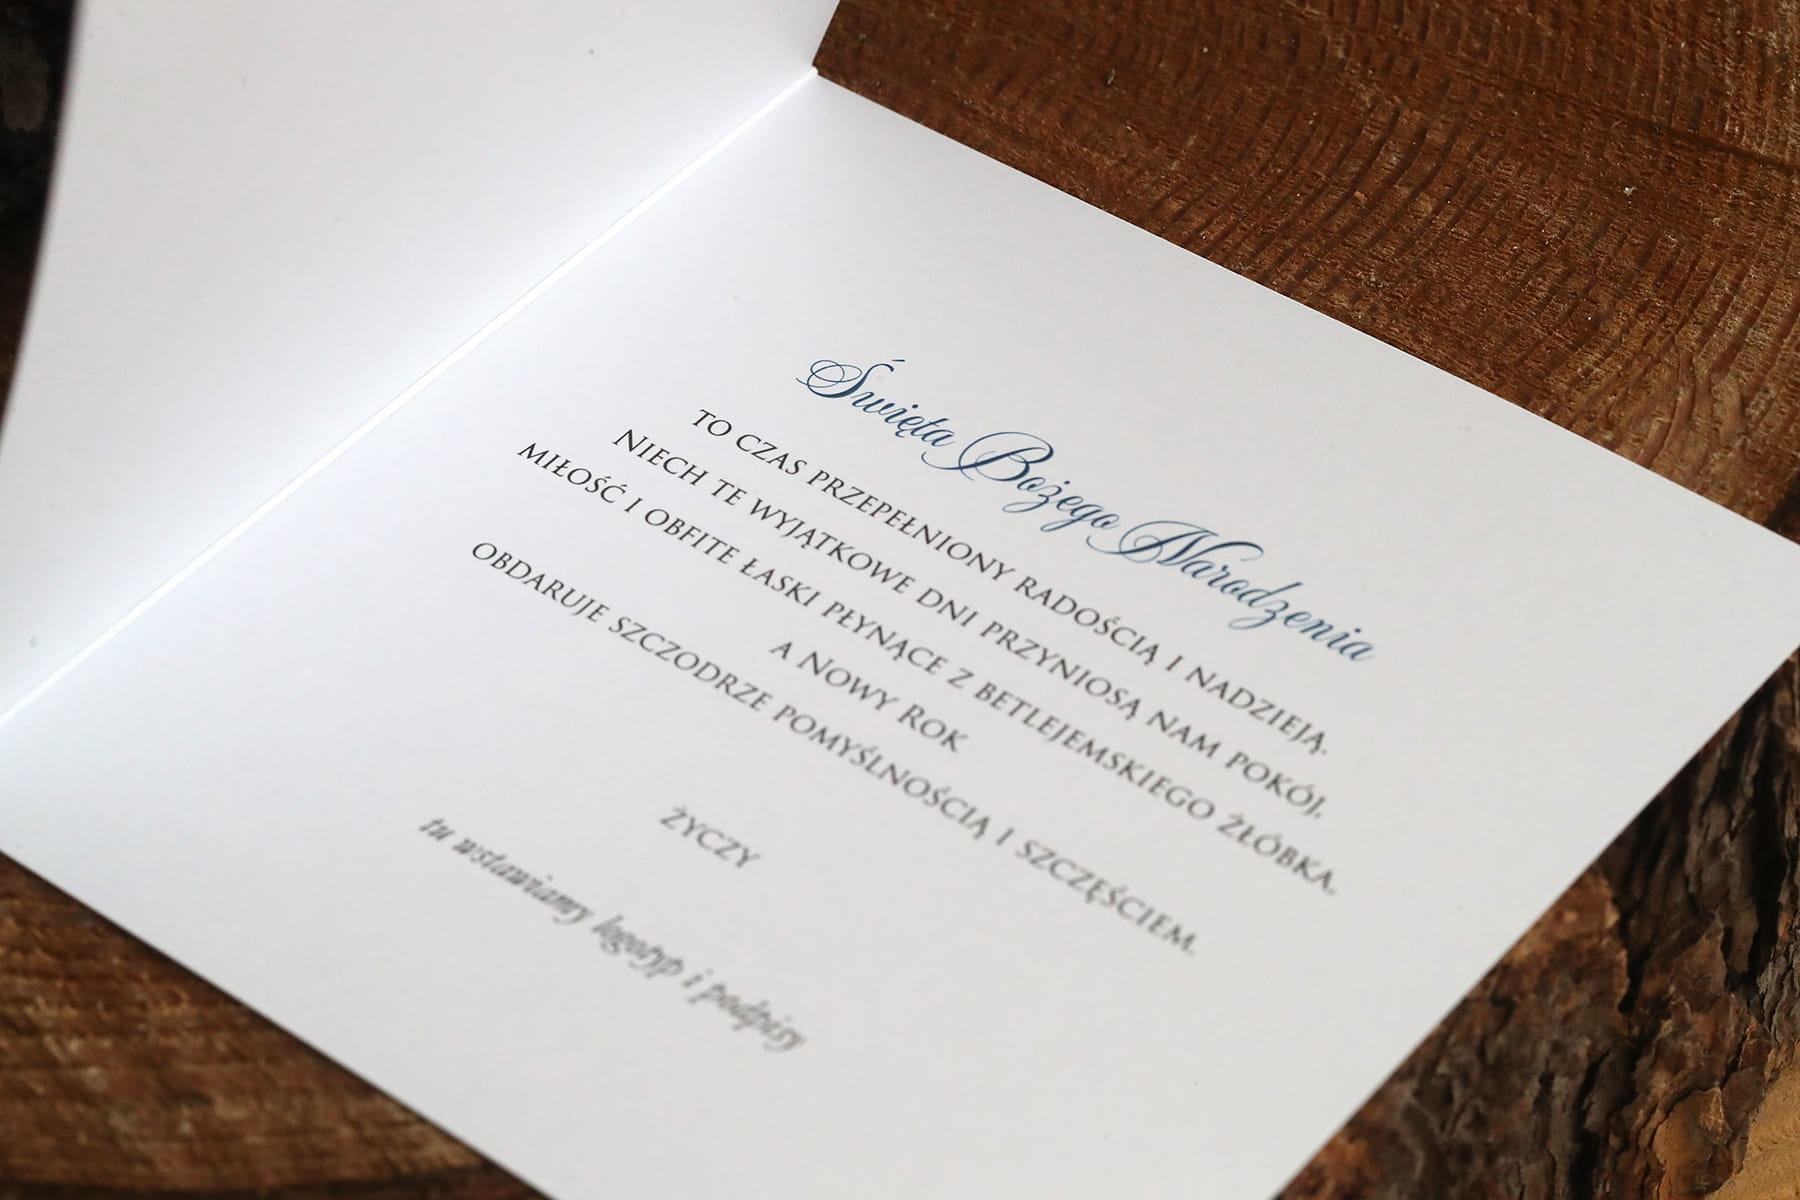 Święta Bożego Narodzenia
TO CZAS PRZEPEŁNIONY RADOŚCIĄ I NADZIEJĄ.
NIECH TE WYJĄTKOWE DNI PRZYNIOSĄ NAM POKÓJ,
MIŁOŚĆ I OBFITE ŁASKI PŁYNĄCE Z BETLEJEMSKIEGO ŻŁÓBKA.
A NOWY ROK
OBDARUJE SZCZODRZE POMYŚLNOŚCIĄ I SZCZĘŚCIEM.
ŻYCZY
tu wstawiamy logotyp i podpisy